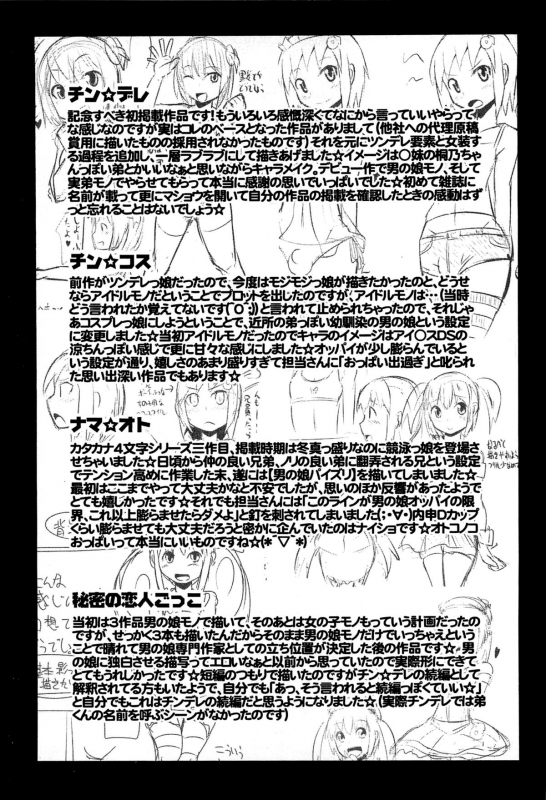 チン☆デレ
記念すべき初掲載作品です!もういろいろ感慨深くてなにから言っていいやらって
な感じなのですが実はコレのベースとなった作品がありまして(他社への代理原稿
賞用に描いたものの採用されなかったものです)それを元にツンデレ要素と女装す
る過程を追加し、一層ラブラブにして描きあげました☆イメージは○妹の桐乃ちゃ
んっぽい弟とかいいなぁと思いながらキャラメイク。デビュー作で男の娘モノ、そして
実弟モノでやらせてもらって本当に感謝の思いでいっぱいでした☆初めて雑誌に
名前が載って更にマショウを開いて自分の作品の掲載を確認したときの感動はず
っと忘れることはないでしょう☆
チン☆コス
前作がツンデレっ娘だったので、今度はモジモジっ娘が描きたかったのと、どうせ
ならアイドルモノだということでプロットを出したのですが、アイドルモノは…(当時
どう言われたか覚えてないです(ﾟOﾟ;))と言われて止められちゃったので、それじゃ
あコスプレっ娘にしようということで、近所の弟っぽい幼馴染の男の娘という設定
に変更しました☆当初アイドルモノだったのでキャラのイメージはアイ○スDSの
涼ちんっぽい感じで更に甘々な感じにしました☆オッパイが少し膨らんでいると
いう設定が通り、嬉しさのあまり盛りすぎて担当さんに「おっぱい出過ぎ」と叱られ
た思い出深い作品でもあります☆
ナマ☆オト
カタカナ4文字シリーズ三作目、掲載時期は冬真っ盛りなのに競泳っ娘を登場さ
せちゃいました☆日頃から仲の良い兄弟、ノリの良い弟に翻弄される兄という設定
でテンション高めに作業した末、遂には【男の娘パイズリ】を描いてしまいました☆
最初はここまでやって大丈夫かなと不安でしたが、思いのほか反響があったようで
とても嬉しかったです☆それでも担当さんには「このラインが男の娘オッパイの限
界、これ以上膨らませたらダメよ」と釘を刺されてしまいました(;・∀・)内申Dカップ
くらい膨らませても大丈夫だろうと密かに企んでいたのはナイショです☆オトコノコ
おっぱいって本当にいいものですね☆(*^▽^*)
秘密の恋人ごっこ
当初は3作品男の娘モノで描いて、そのあとは女の子モノもっていう計画だった
のですが、せっかく3本も描いたんだからそのまま男の娘モノだけでいっちゃえという
ことで晴れて男の娘専門作家としての立ち位置が決定した後の作品です☆ 男
の娘に独白させる描写ってエロいなぁと以前から思っていたので実際形にできて
とてもうれしかったです☆短編のつもりで描いたのですがチン☆デレの続編として
解釈されてる方もいたようで、自分でも「あっ、そう言われると続編っぽくていい☆」
と自分でもこれはチンデレの続編だと思うようになりました☆(実際チンデレでは弟
くんの名前を呼ぶシーンがなかったのです)